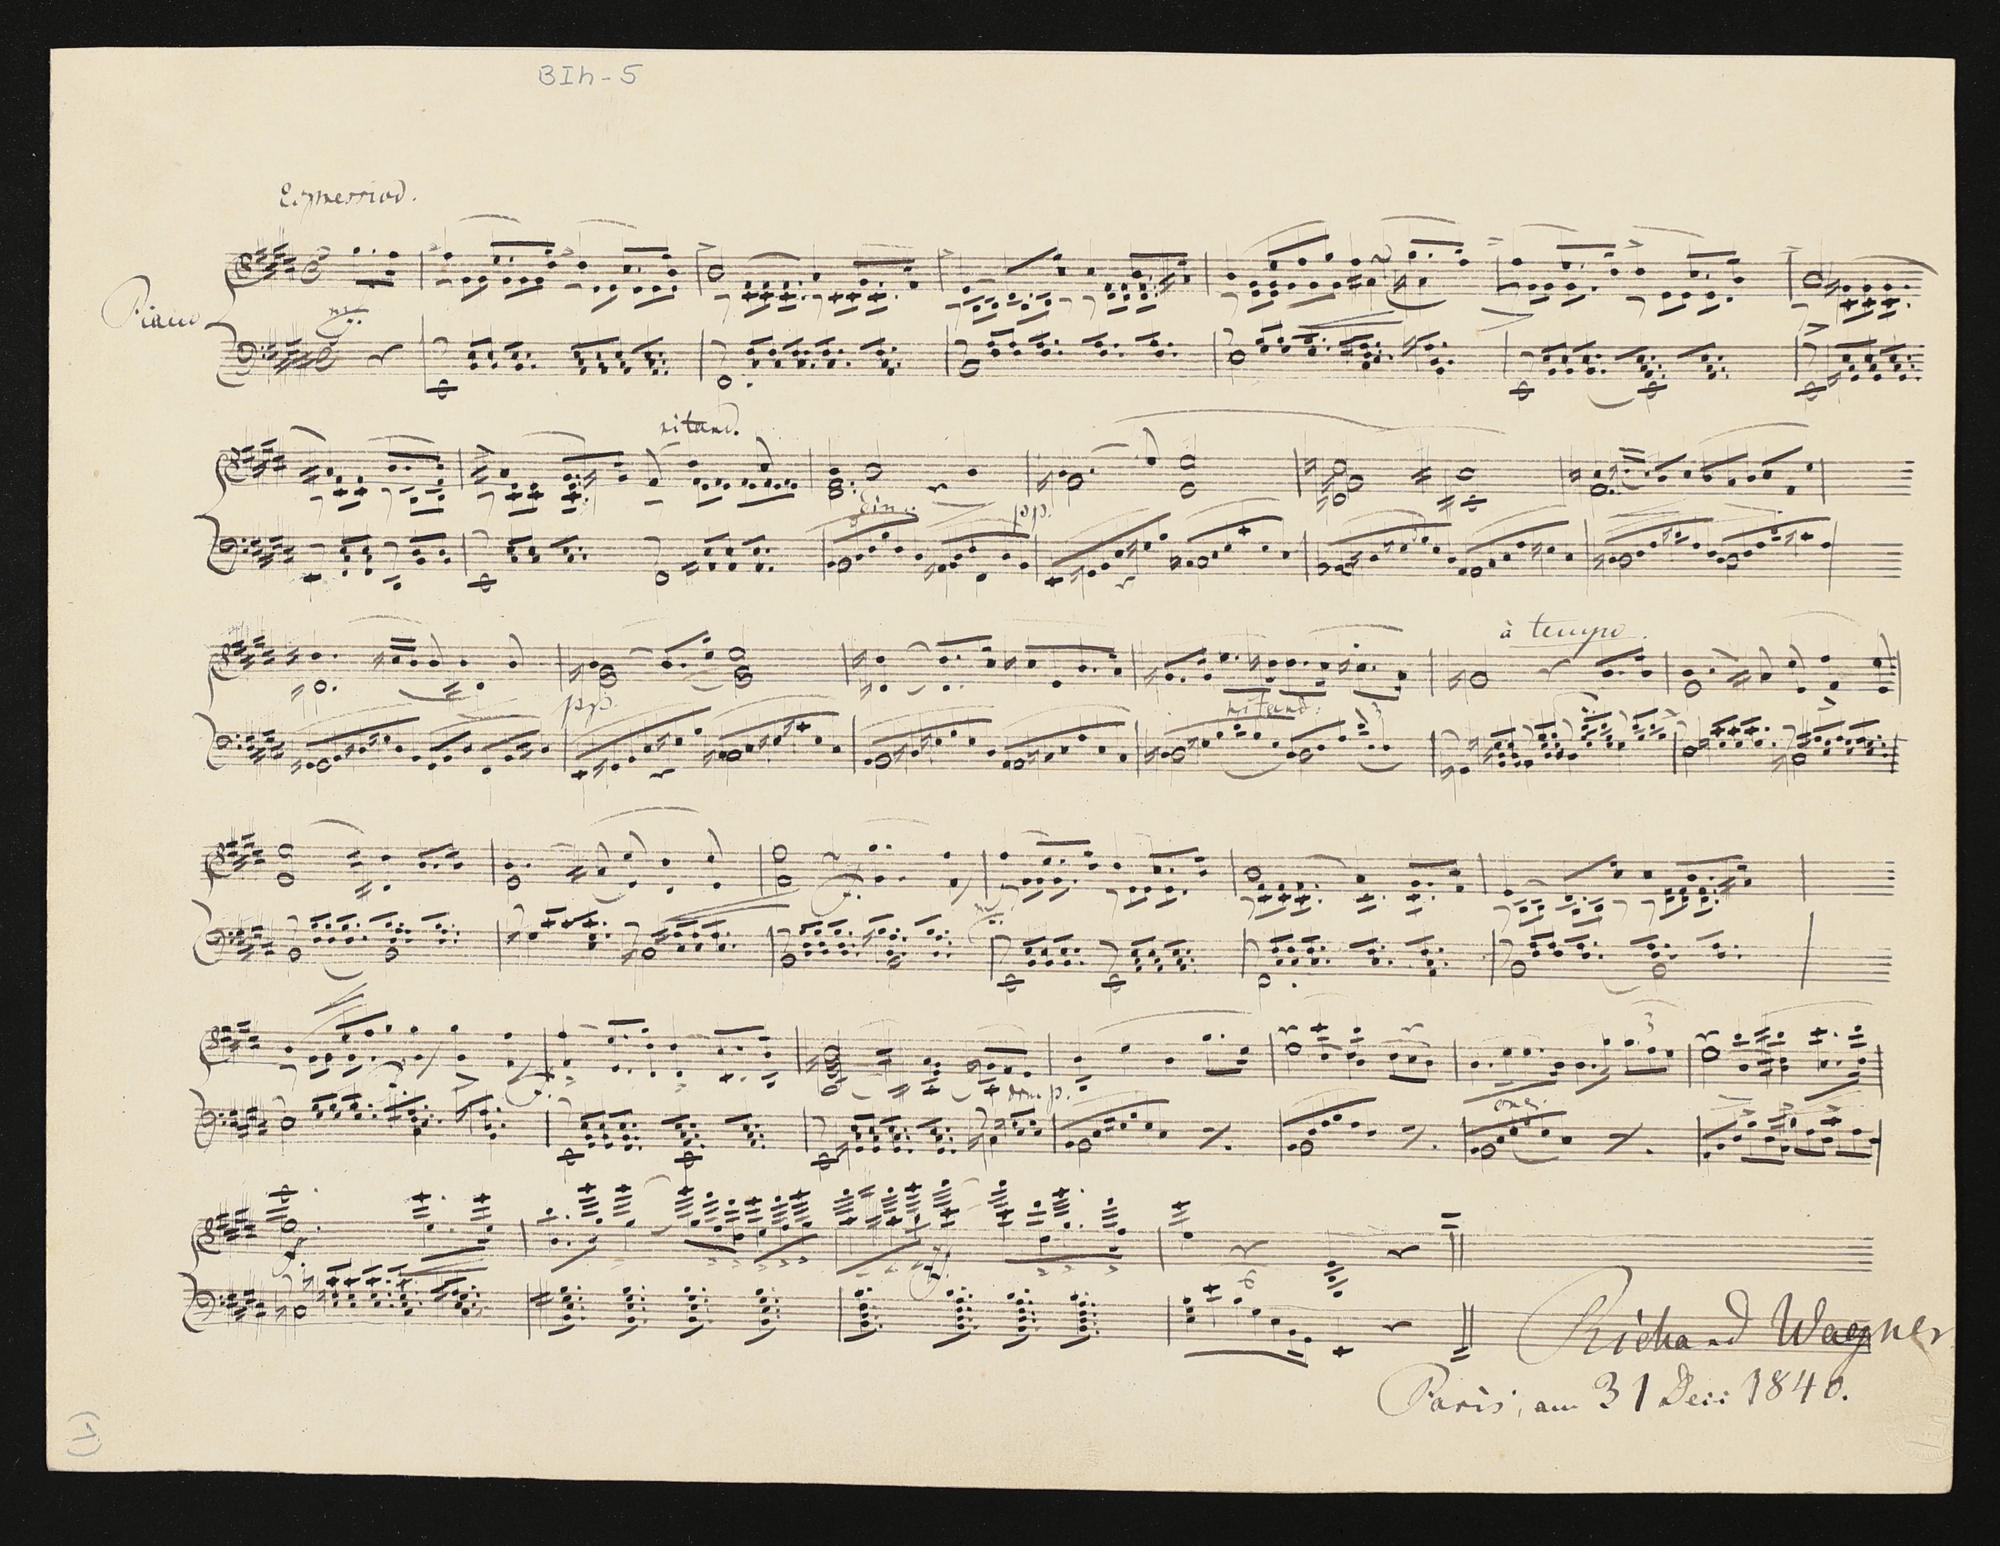 BIh-5
Espressivo.
Piano
ritard.
dim.
pp.
à tempo.
pp.
ritard.
3
3
dim p.
cres.
f.
ff.
6
Richard Wagner
Paris, am 31 Dec: 1840.